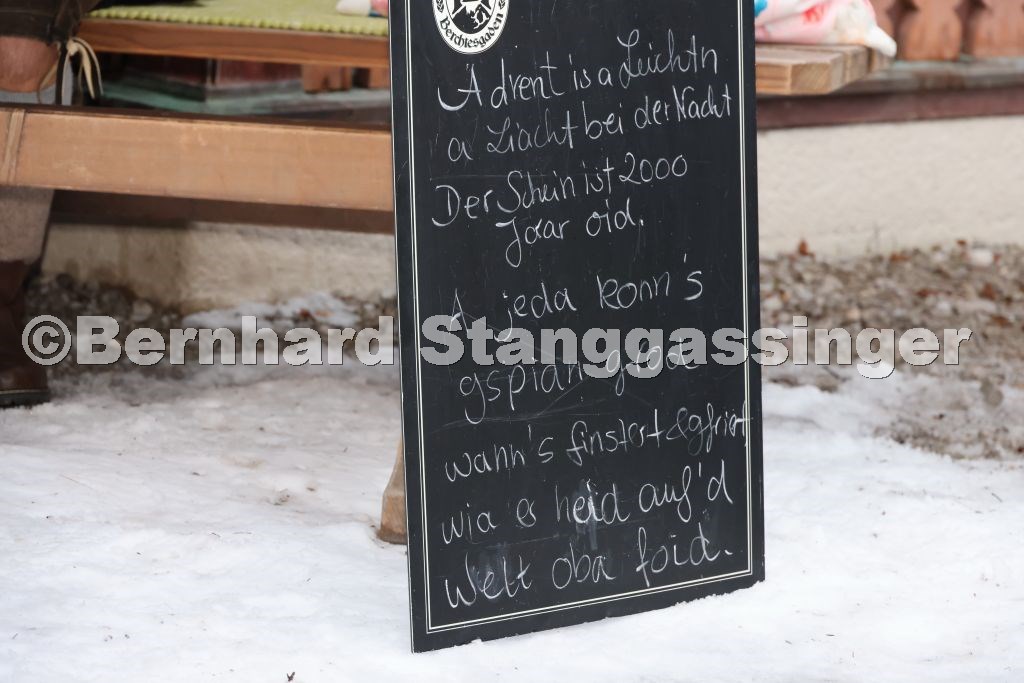 Berchtesgaden
Advent is a Leichtn
a Liacht bei der Nacht
Der Schein ist 2000
Joar oid.
A jeda konn's
gspian grod
wann's finstert & gfriert
wia es heid auf'd
Welt oba foid.
©Bernhard Stanggassinger